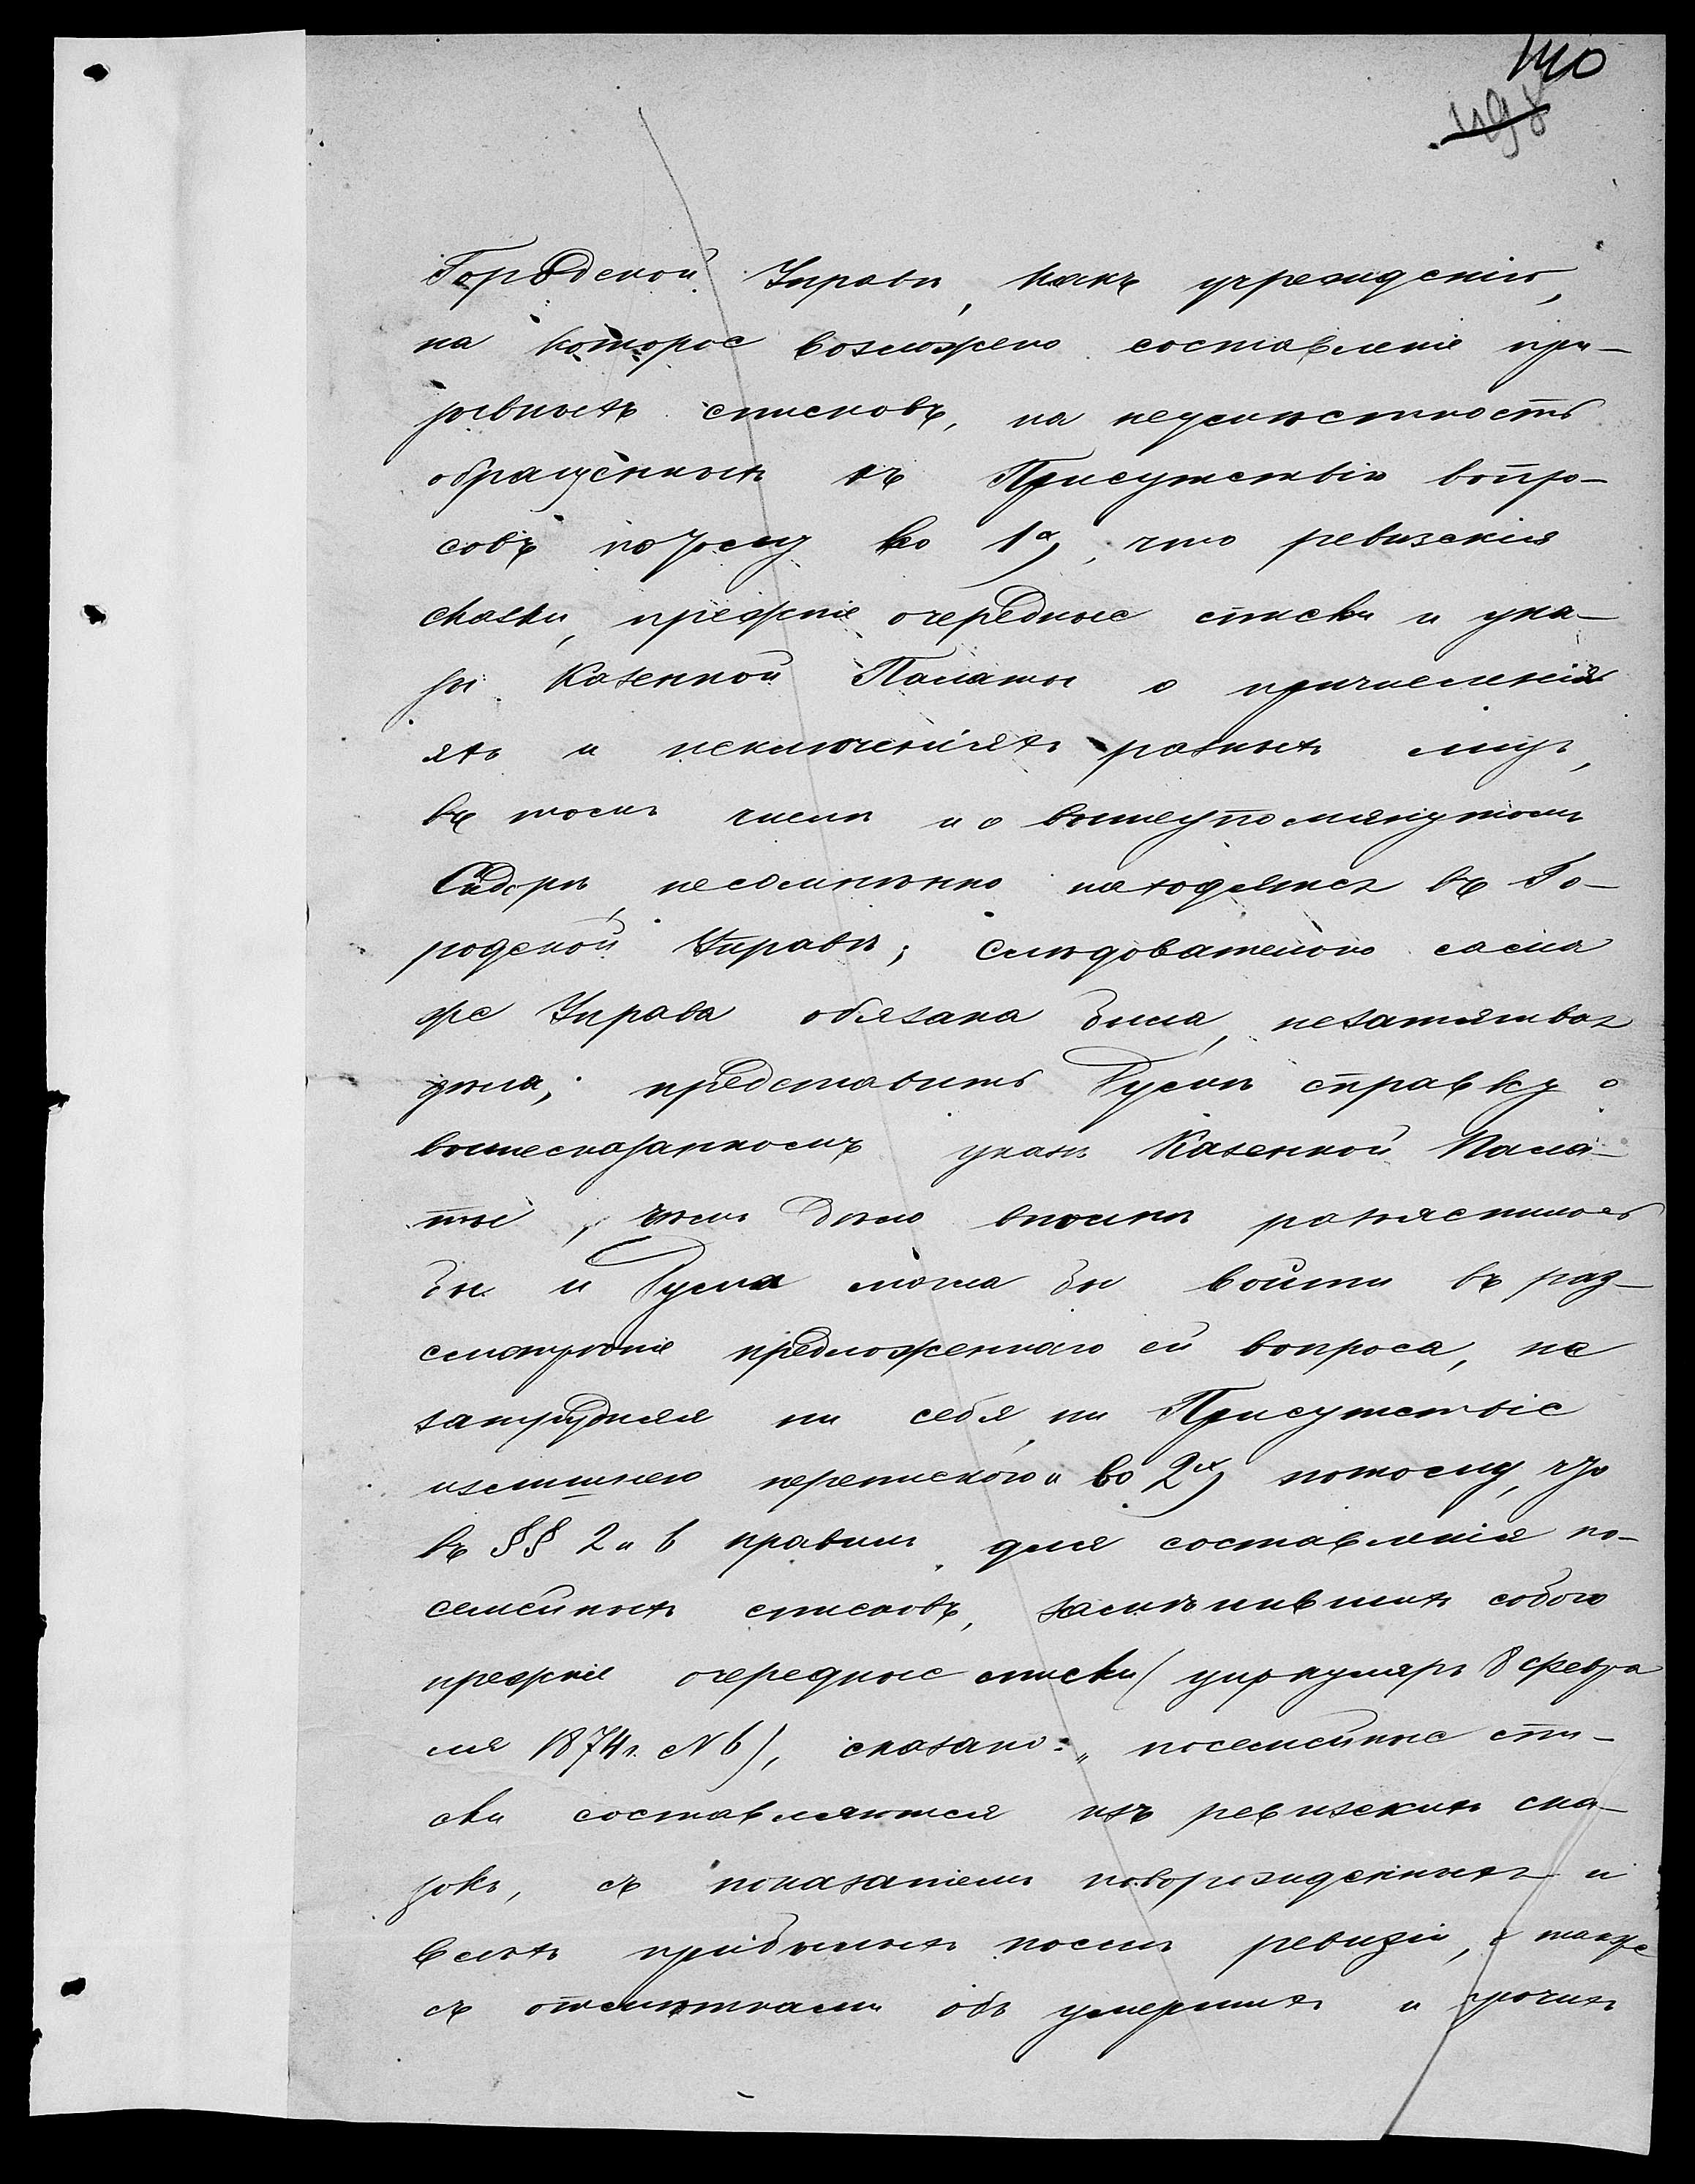 140
498
Городской Управѣ, какъ учрежденію,
на которое возложено составленіе при-
зывныхъ списковъ, на неумѣстность
обращенныхъ къ Присутствію вопро-
совъ потому во 1х), что ревизскія
сказки, прежніе очередные списки и ука-
зы Казенной Палаты о причислені-
яхъ и исключеніяхъ разныхъ лицъ,
въ томъ числѣ и о вышеупомянутомъ
Сидорѣ, несомнѣнно находятся въ Го-
родской Управѣ; слѣдовательно сама
же Управа обязана была, незатягивая
дѣла, представить Думѣ справку о
вышесказанномъ указѣ Казенной Пала-
ты, чѣмъ дѣло вполнѣ разъяснилось
бы и Дума могла бы войти въ раз-
смотрѣніе предложеннаго ей вопроса, не
затрудняя ни себя, ни Присутствіе
излишнею перепискою и во 2х) потому, что
въ §§ 2 и 6 правилъ для составленія по-
семейныхъ списковъ, замѣнившихъ собою
прежніе очередные списки (циркуляръ 8 февра
ля 1874 г. № 6), сказано: „посемейные спи-
ски составляются изъ ревизскихъ ска-
зокъ, съ показаніемъ новорожденныхъ и
всѣхъ прибылыхъ послѣ ревизіи, а также
съ отмѣтками объ умершихъ и прочихъ